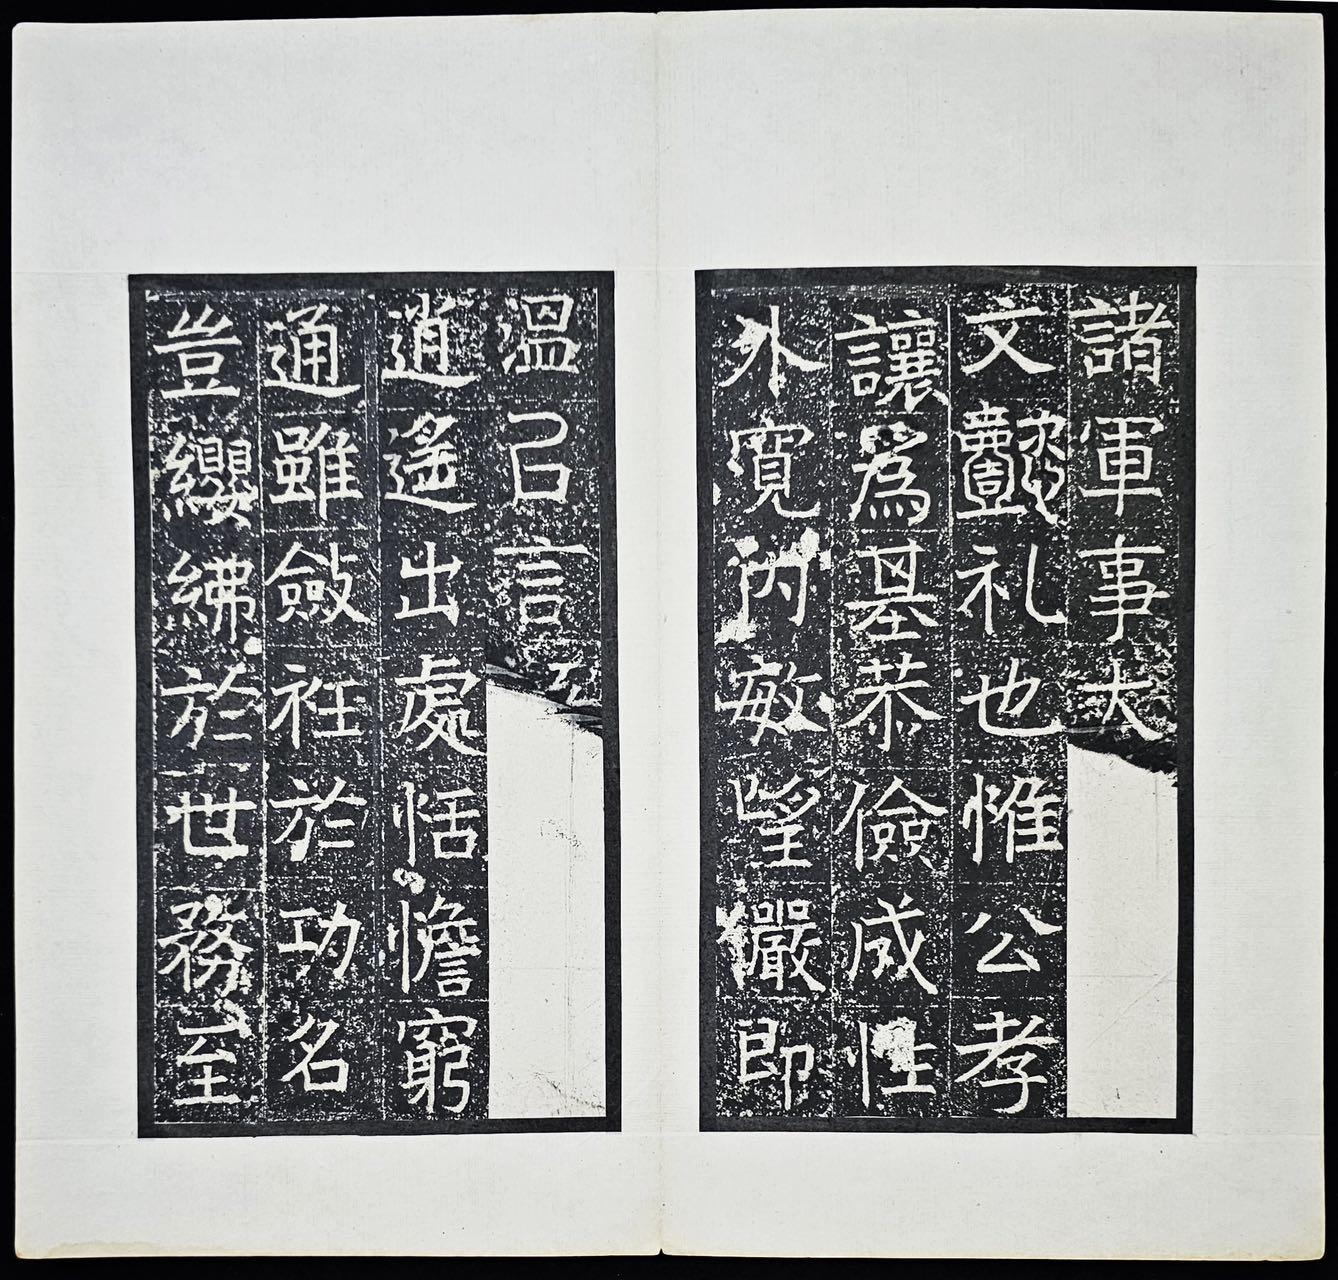 諸軍事大
文懿礼也惟公孝
讓爲基恭儉成性
外寬内敏望嚴即
溫㠯言
逍遙出處恬憺窮
通雖斂衽於功名
豈纓紼於世務至